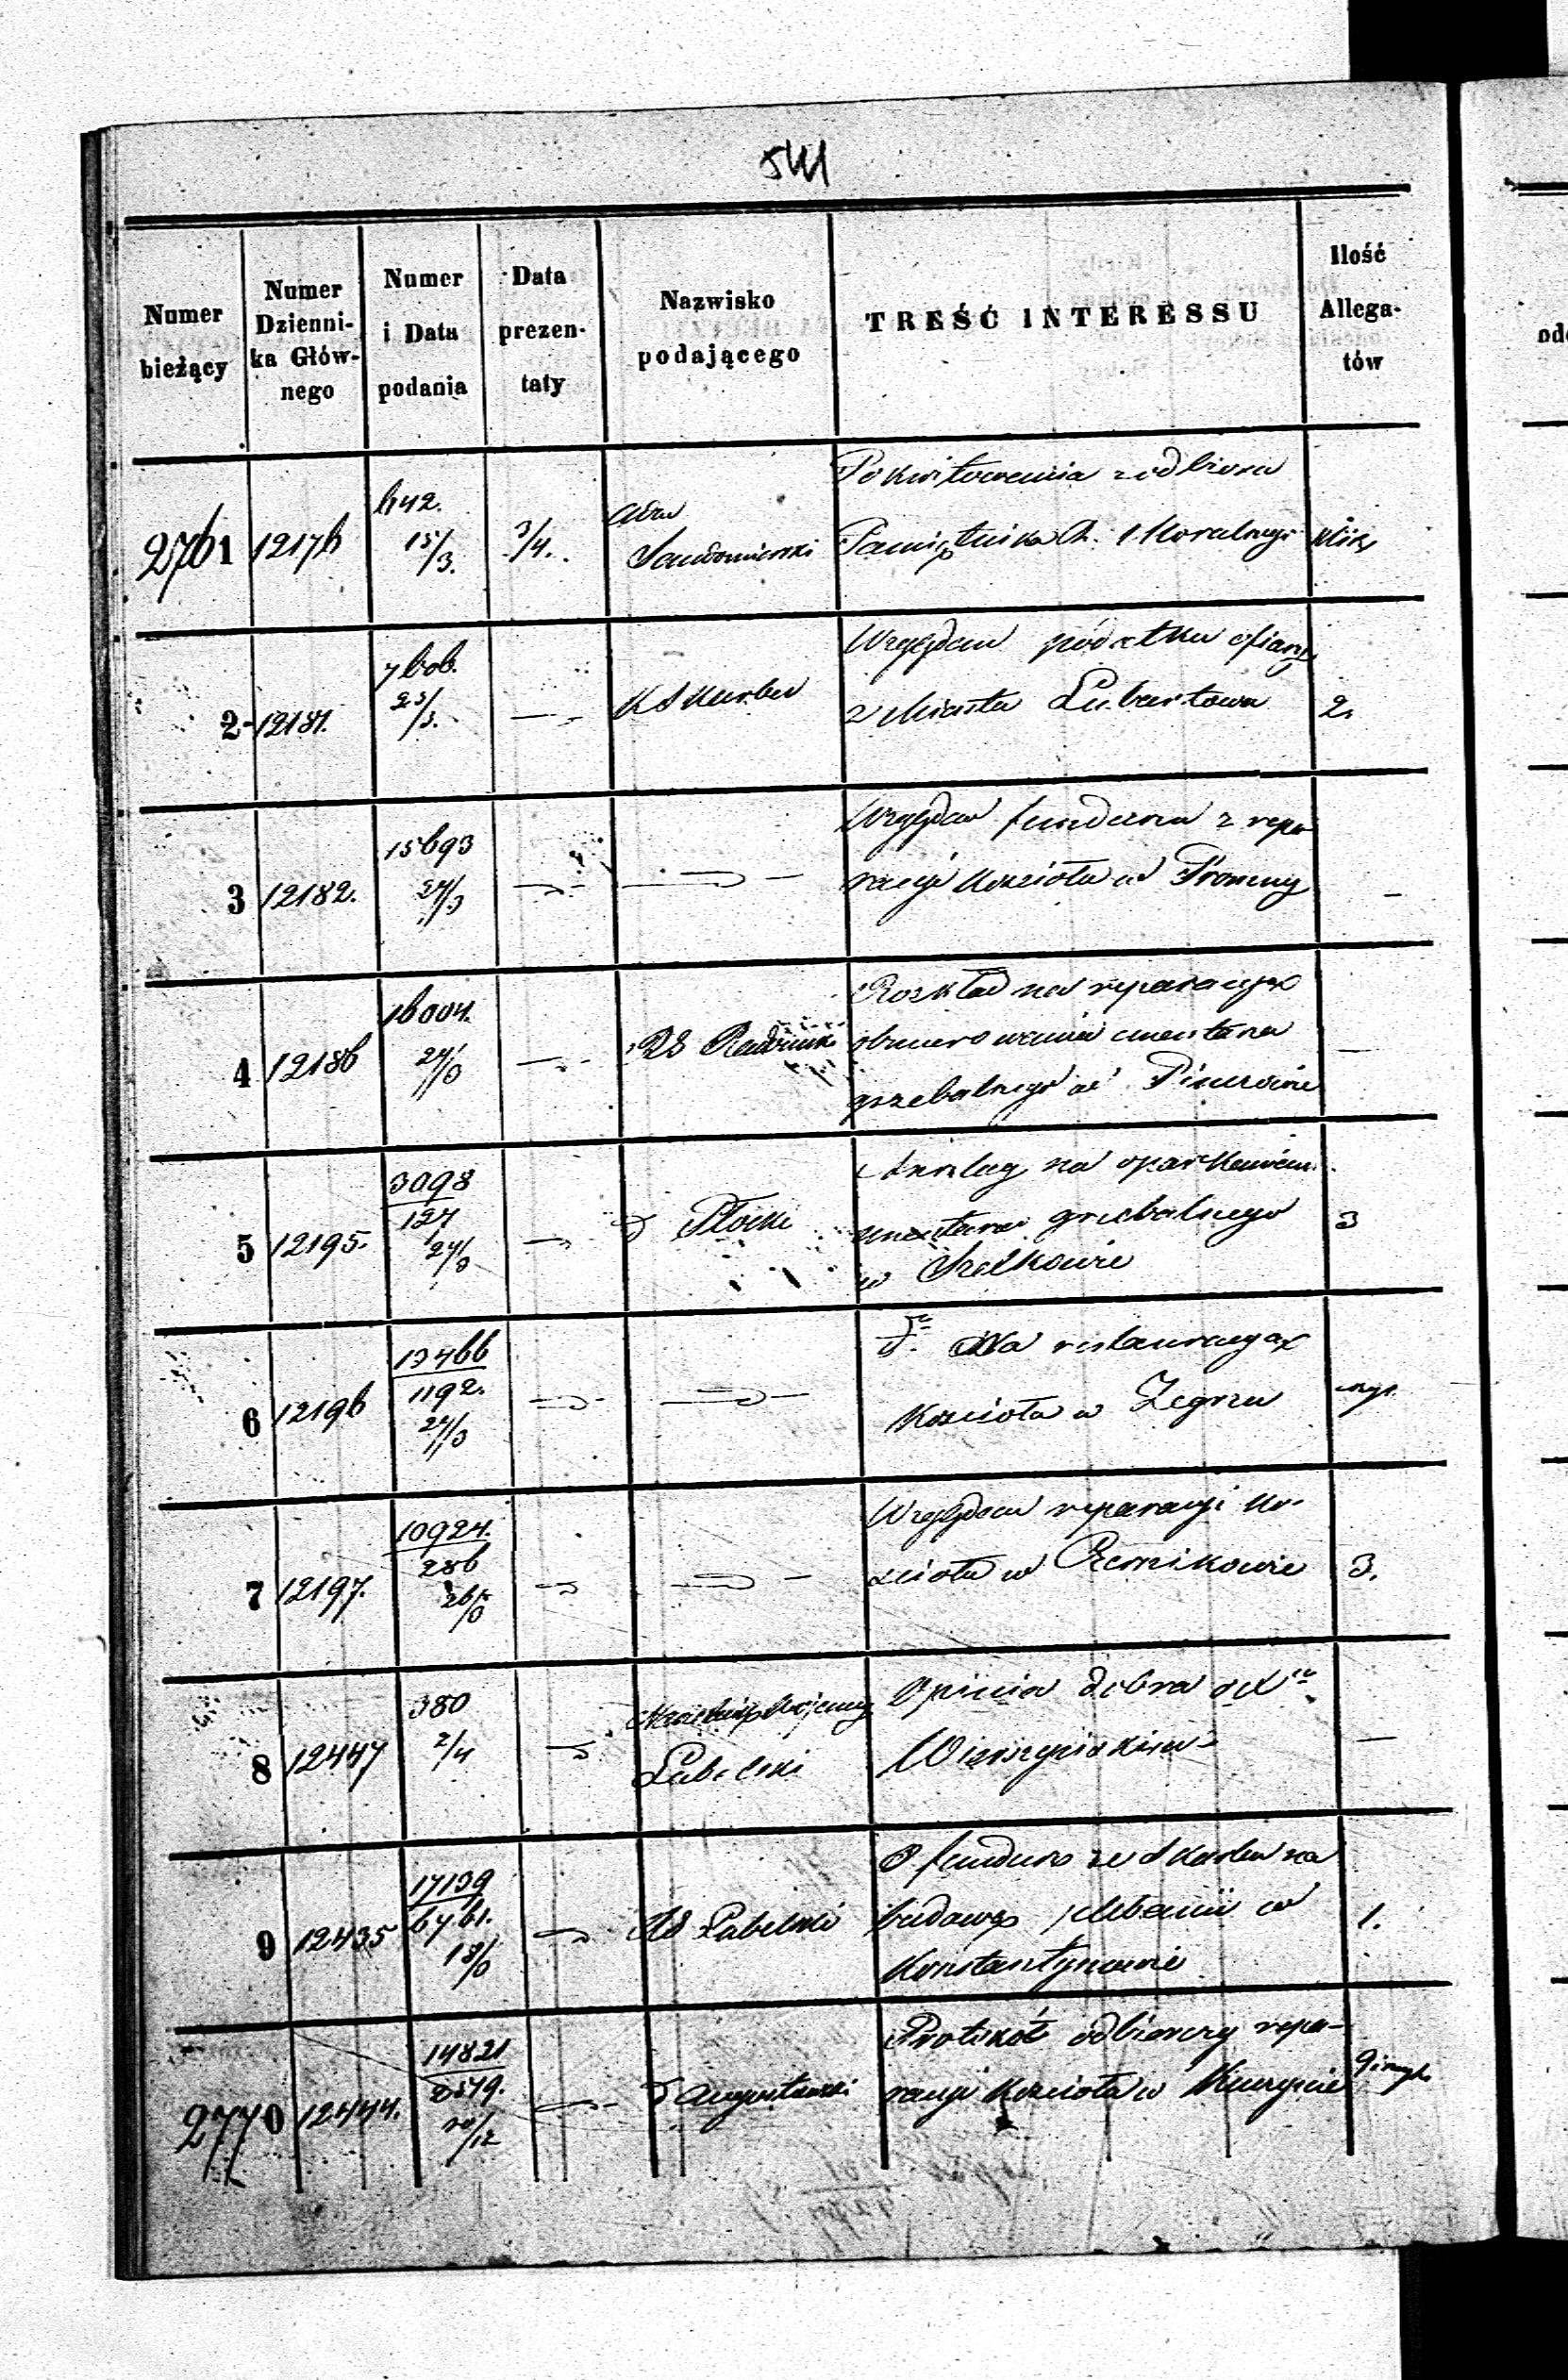 541
Numer bieżący
Numer Dzienni- ka Głów- nego
Numer i Data podania
Data prezen- taty
Nazwisko podającego
TREŚĆ INTERESSU
Ilość Allega- tów
2761 12176
642.
15/3.
3/4.
Sandomierski
Pokwitowania z odbioru
Pamiętnika R. i Moralnego
2 12181.
7606.
23/3.
K S Skarbu
Względem podatku ofiary
z Miasta Lubartowa
2.
3 12182.
15693
24/3
Względem funduszu z repa
racyi Kościoła w Promny
4 12186
16004.
24/3
RG Radomski
Rozkład na reparacyą
obmurowania cmentarza
grzebalnego w
5 12195.
3098
127
24/3
d Płocki
Anszlag na oparkanienie
cmentarza grzebalnego
w Szelkowie
3
6 12196
13466
1192.
24/3
d° Na restauracyą
Kościoła w Zegrzu
7 12197.
10924.
286
26/3
Względem reparacyi Ko-
ścioła w
3.
8 12447
380
2/4
Naczelnik Wojenny
Lubelski
Opinia dobra o X
9 12435
17139
6761.
18/3
RG Lubelski
O fundusz ze Skarbu na
budowę plebanii w
Konstantynowie
1.
2770 12444.
14821
2579.
30/12
d Augustowski
Protokół odbiorczy repa-
racyi Kościoła w Kuczynie